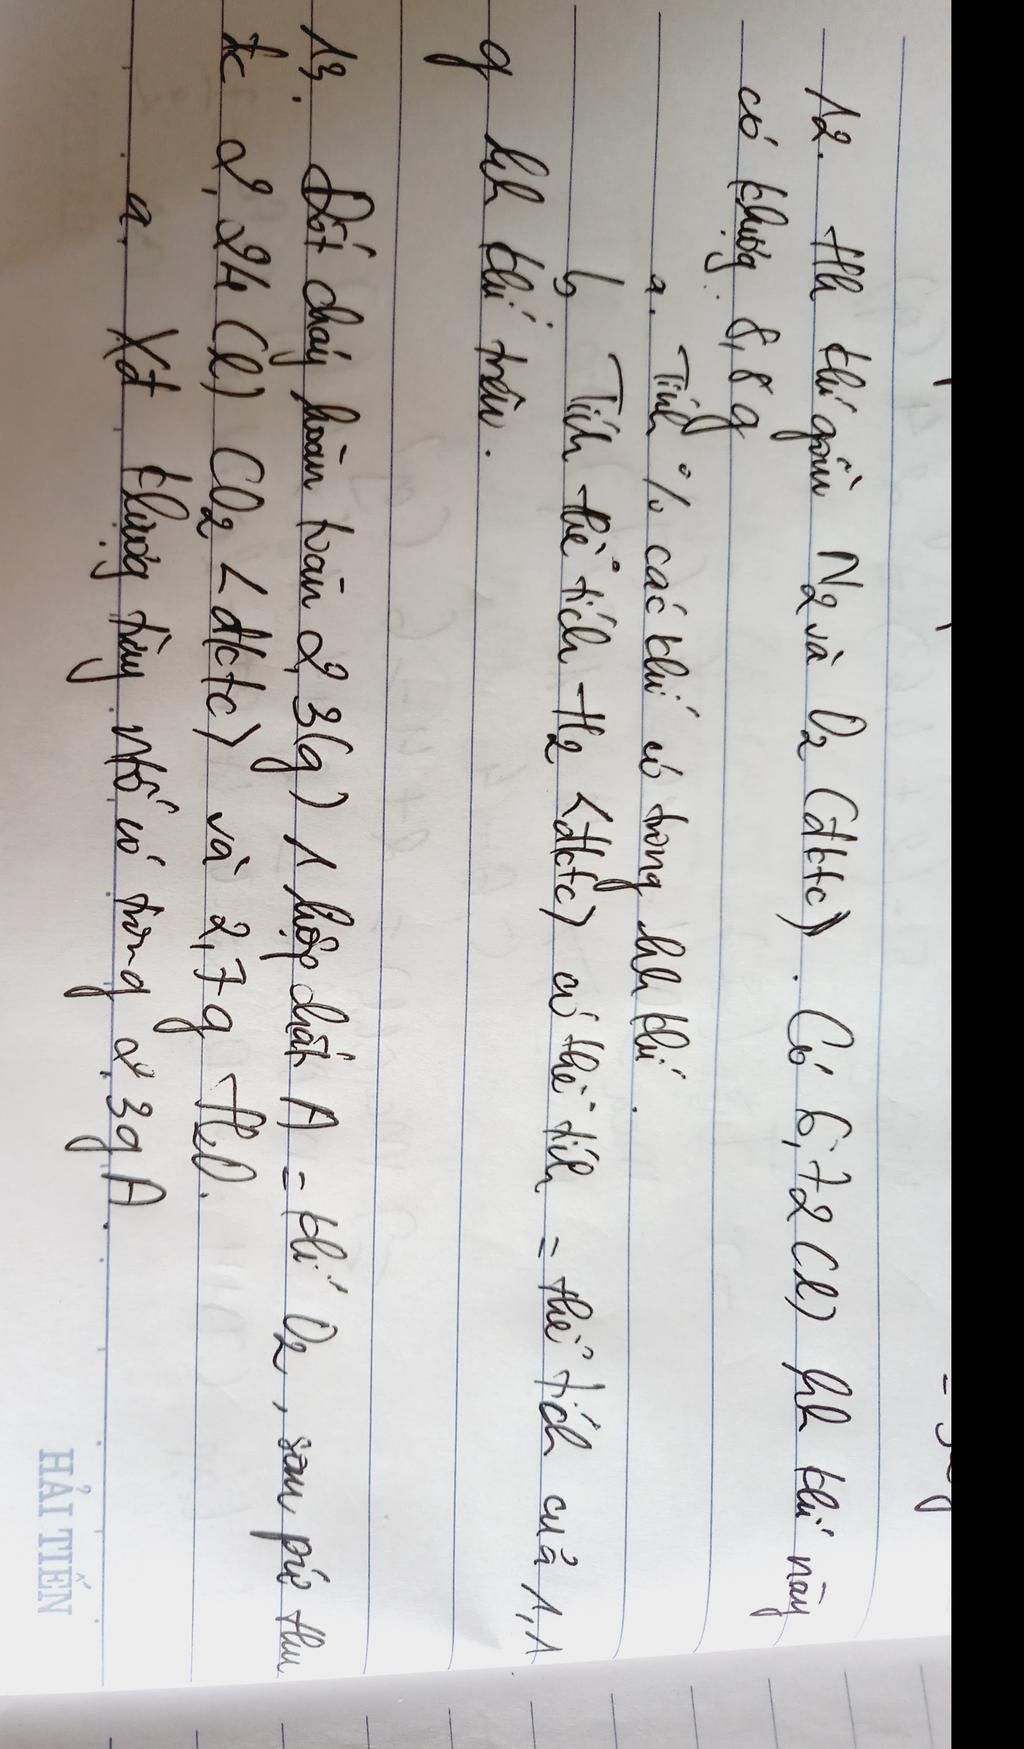 12. Hh khí gồm N2 và O2 (đktc). Có 6,72 (l) hh khí này
có khượng 8,8g
a. Tính % các khí có trong hh khí.
b, Tính thể tích H2 (đktc) có thể tích = thể tích của 1,1
g hh khí trên.
13. Đốt cháy hoàn toàn 2,3(g) 1 hợp chất A = khí O2, sau pứ thu
đc 2,24 (l) CO2 (đktc) và 2,7g H2O.
a. Xđ khượng từng Ntố có trong 2,3g A
HẢI TIẾN